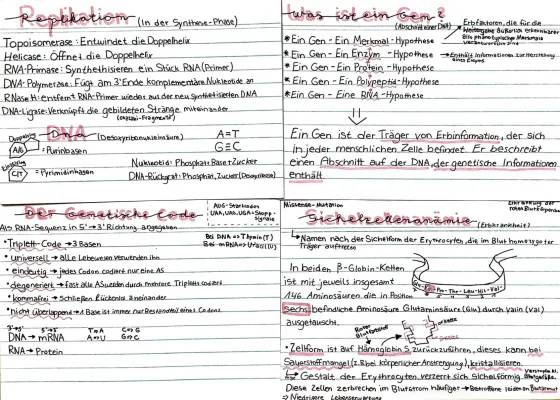 Replikation (In der Synthese-Phase)
Topoisomerase: Entwindet die Doppelhelix
Helicase: Öffnet die Doppelhelix
RNA-Primase: Synthethisieren ein Stück RNA (Primer)
DNA-Polymerase: Fügt am 3'Ende komplementäre Nukleotide an
RNase H: entfernt RNA-Primer wieder aus der neu synthetisierten DNA
DNA-Ligase: Verknüpft die gebildeten Stränge miteinander
(Okazaki-Fragmente)
DNA (Desoxyribonukleinsäure) A=T
A/G = Purinbasen G≡C
Nukleotid: Phosphat+Base+Zucker
C/T = Pyrimidinbasen DNA-Rückgrat: Phosphat, Zucker (Desoxyribose)
Was ist ein Gen?
(Abschnitt einer DNA)
Erbfaktoren, die für die
*Ein Gen - Ein Merkmal-Hypothese
*Ein Gen - Ein Enzym-Hypothese
*Ein Gen - Ein Protein-Hypothese
*Ein Gen - Ein Polypeptid-Hypothese
*Ein Gen - Eine RNA-Hypothese
Ein Gen ist der Träger von Erbinformation, der sich
in jeder menschlichen Zelle befindet. Er beschreibt
einen Abschnitt auf der DNA, der genetische Informationen
enthält.
Der Genetische Code
AUG = Startcodon
UAA, UAG, UGA = Stopp-
signale
Als RNA-Sequenz in 5'→3' Richtung angegeben
Bei DNA => Thymin (T)
Bei mRNA => Uracil (U)
*Triplett-Code → 3 Basen
*universell → alle Lebewesen verwenden ihn
*eindeutig → jedes Codon codiert nur eine AS
*degeneriert → fast alle AS wurden durch mehrere Tripletts codiert
*kommafrei → Schließen lückenlos aneinander
*nicht überlappend → 1 Base ist immer nur Bestandteil eines Codons
DNA → mRNA
RNA → Protein
Missense-Mutation
Sichelzellenanämie (Erbkrankheit)
Erkrankung der
roten Blutkörperchen
Namen nach der Sichelform der Erythrocyten, die im Blut homozygoter
Träger auftreten
In beiden β-Globin-Ketten
ist mit jeweils insgesamt
146 Aminosäuren die in Position
sechs befindliche Aminosäure Glutaminsäure (Glu) durch Valin (Val)
ausgetauscht.
Roter
Blutfarbstoff
*Zellform ist auf Hämoglobin S zurückzuführen, dieses kann bei
Sauerstoffmangel (z.B bei körperlicher Anstrengung), kristallisieren.
Gestalt der Erythrocyten verzerrt sich sichelförmig.
Diese Zellen zerbrechen im Blutstrom häufiger → Betroffene leiden an Blutarmut
=> Niedrigere Lebenserwartung